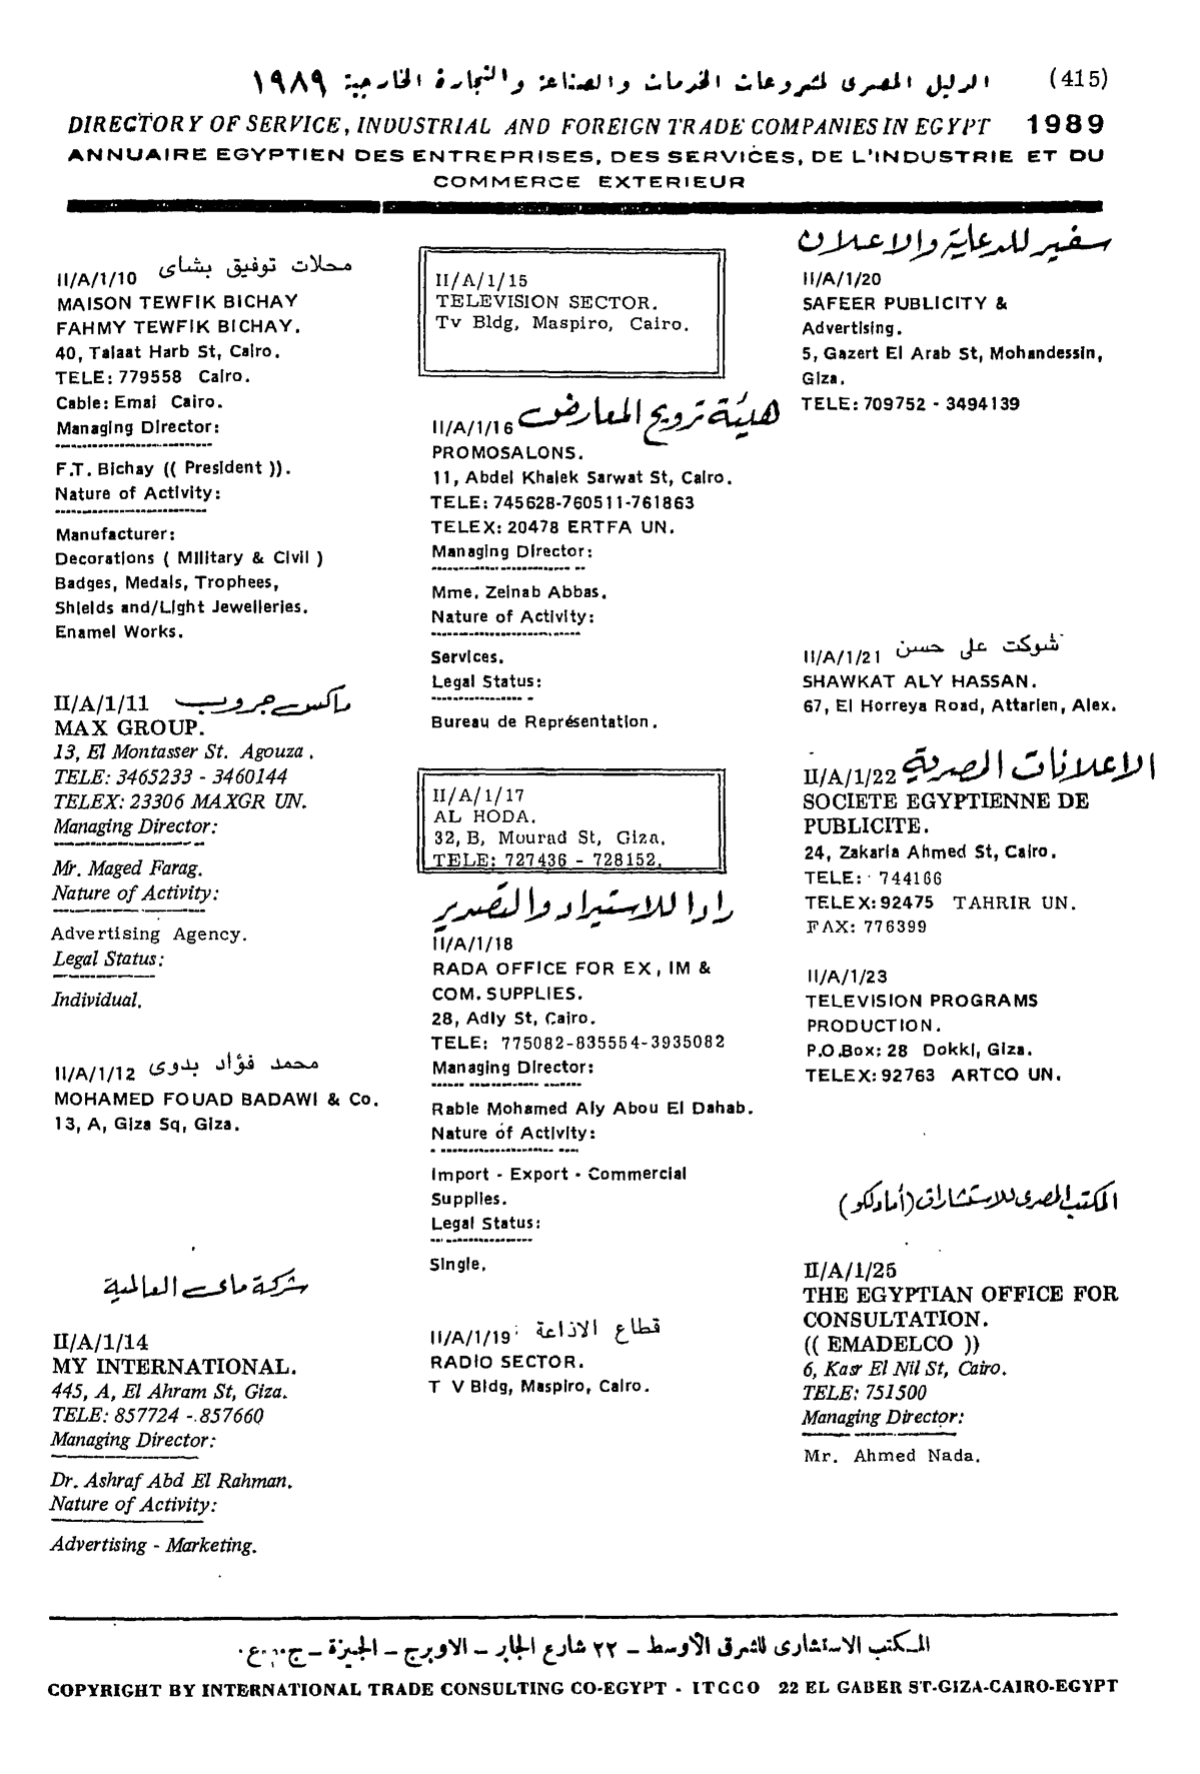 الدليل المصرى لمشروعات الخدمات والصناعة والتجارة الخارجية ١٩٨٩ (415)
DIRECTORY OF SERVICE, INDUSTRIAL AND FOREIGN TRADE COMPANIES IN EGYPT 1989
ANNUAIRE EGYPTIEN DES ENTREPRISES, DES SERVICES, DE L'INDUSTRIE ET DU
COMMERCE EXTERIEUR
II/A/1/10 محلات توفيق بشاى
MAISON TEWFIK BICHAY
FAHMY TEWFIK BICHAY.
40, Talaat Harb St, Cairo.
TELE: 779558 Cairo.
Cable: Emai Cairo.
Managing Director:
F.T. Bichay (( President )).
Nature of Activity:
Manufacturer:
Decorations ( Military & Civil )
Badges, Medals, Trophees,
Shields and/Light Jewelleries.
Enamel Works.
II/A/1/11 ماكس جروب
MAX GROUP.
13, El Montasser St. Agouza.
TELE: 3465233 - 3460144
TELEX: 23306 MAXGR UN.
Managing Director:
Mr. Maged Farag.
Nature of Activity:
Advertising Agency.
Legal Status:
Individual.
II/A/1/12 محمد فؤاد بدوى
MOHAMED FOUAD BADAWI & Co.
13, A, Giza Sq, Giza.
شركة ماى العالمية
II/A/1/14
MY INTERNATIONAL.
445, A, El Ahram St, Giza.
TELE: 857724 - 857660
Managing Director:
Dr. Ashraf Abd El Rahman.
Nature of Activity:
Advertising - Marketing.
II/A/1/15
TELEVISION SECTOR.
Tv Bldg, Maspiro, Cairo.
II/A/1/16 هيئة ترويج المعارض
PROMOSALONS.
11, Abdel Khalek Sarwat St, Cairo.
TELE: 745628-760511-761863
TELEX: 20478 ERTFA UN.
Managing Director:
Mme. Zeinab Abbas.
Nature of Activity:
Services.
Legal Status:
Bureau de Représentation.
II/A/1/17
AL HODA.
32, B, Mourad St, Giza.
TELE: 727436 - 728152.
رادا للاستيراد والتصدير
II/A/1/18
RADA OFFICE FOR EX, IM &
COM. SUPPLIES.
28, Adly St, Cairo.
TELE: 775082-835554-3935082
Managing Director:
Rable Mohamed Aly Abou El Dahab.
Nature of Activity:
Import - Export - Commercial
Supplies.
Legal Status:
Single.
II/A/1/19 قطاع الاذاعة
RADIO SECTOR.
T V Bldg, Maspiro, Cairo.
سفير للدعاية والاعلان
II/A/1/20
SAFEER PUBLICITY &
Advertising.
5, Gazert El Arab St, Mohandessin,
Giza.
TELE: 709752 - 3494139
II/A/1/21 شوكت على حسن
SHAWKAT ALY HASSAN.
67, El Horreya Road, Attarien, Alex.
II/A/1/22 الاعلانات المصرية
SOCIETE EGYPTIENNE DE
PUBLICITE.
24, Zakaria Ahmed St, Cairo.
TELE: 744166
TELEX: 92475 TAHRIR UN.
FAX: 776399
II/A/1/23
TELEVISION PROGRAMS
PRODUCTION.
P.O.Box: 28 Dokki, Giza.
TELEX: 92763 ARTCO UN.
المكتب المصرى للاستشارات (أمادلكو)
II/A/1/25
THE EGYPTIAN OFFICE FOR
CONSULTATION.
(( EMADELCO ))
6, Kasr El Nil St, Cairo.
TELE: 751500
Managing Director:
Mr. Ahmed Nada.
المكتب الاستشارى للشرق الأوسط – ٢٢ شارع الجابر – الاوبرج – الجيزة – ج.م.ع.
COPYRIGHT BY INTERNATIONAL TRADE CONSULTING CO-EGYPT - ITCCO 22 EL GABER ST-GIZA-CAIRO-EGYPT